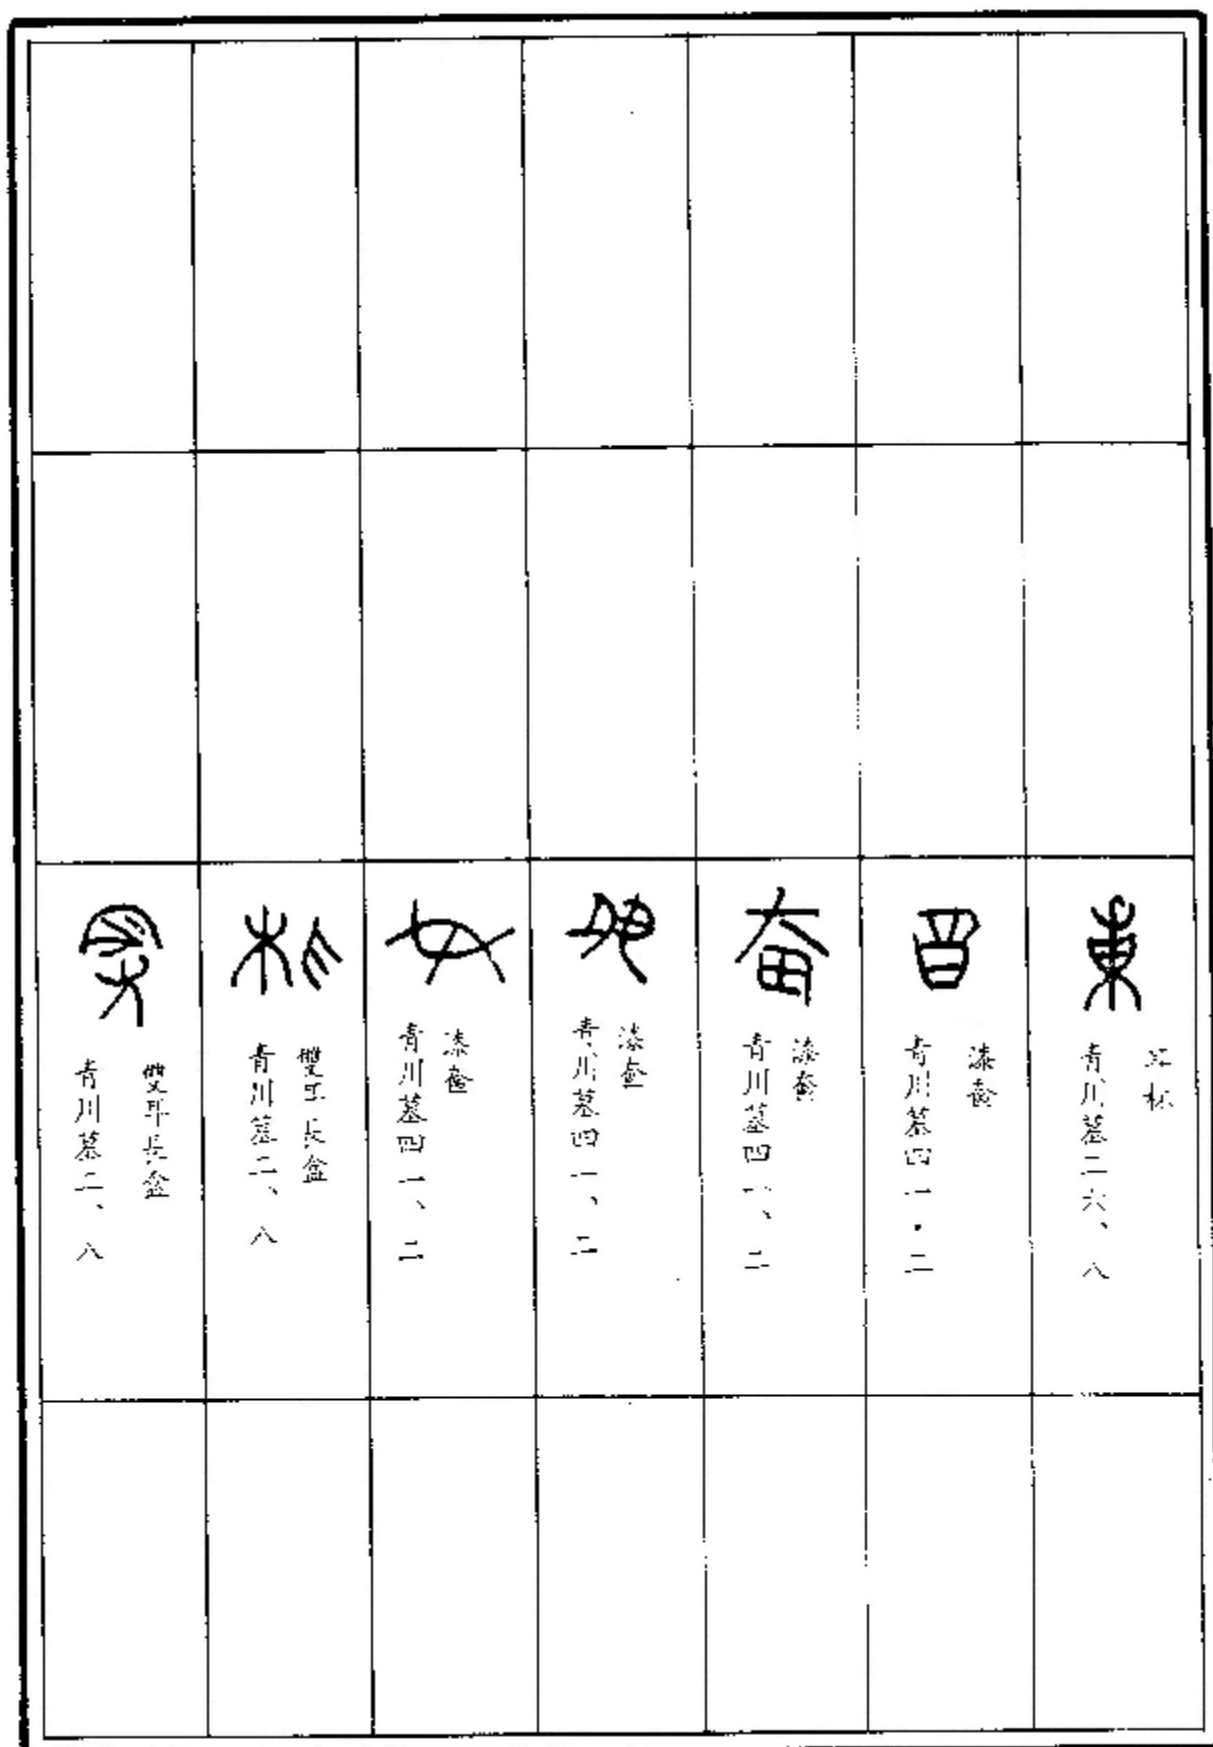 耳杯
青川墓二六、八
漆奩
青川墓四一・二
奋
漆奩
青川墓四一、二
漆奩
青川墓四一、二
女
漆奩
青川墓四一、二
杉
雙耳長盒
青川墓二、八
雙耳長盒
青川墓二、八